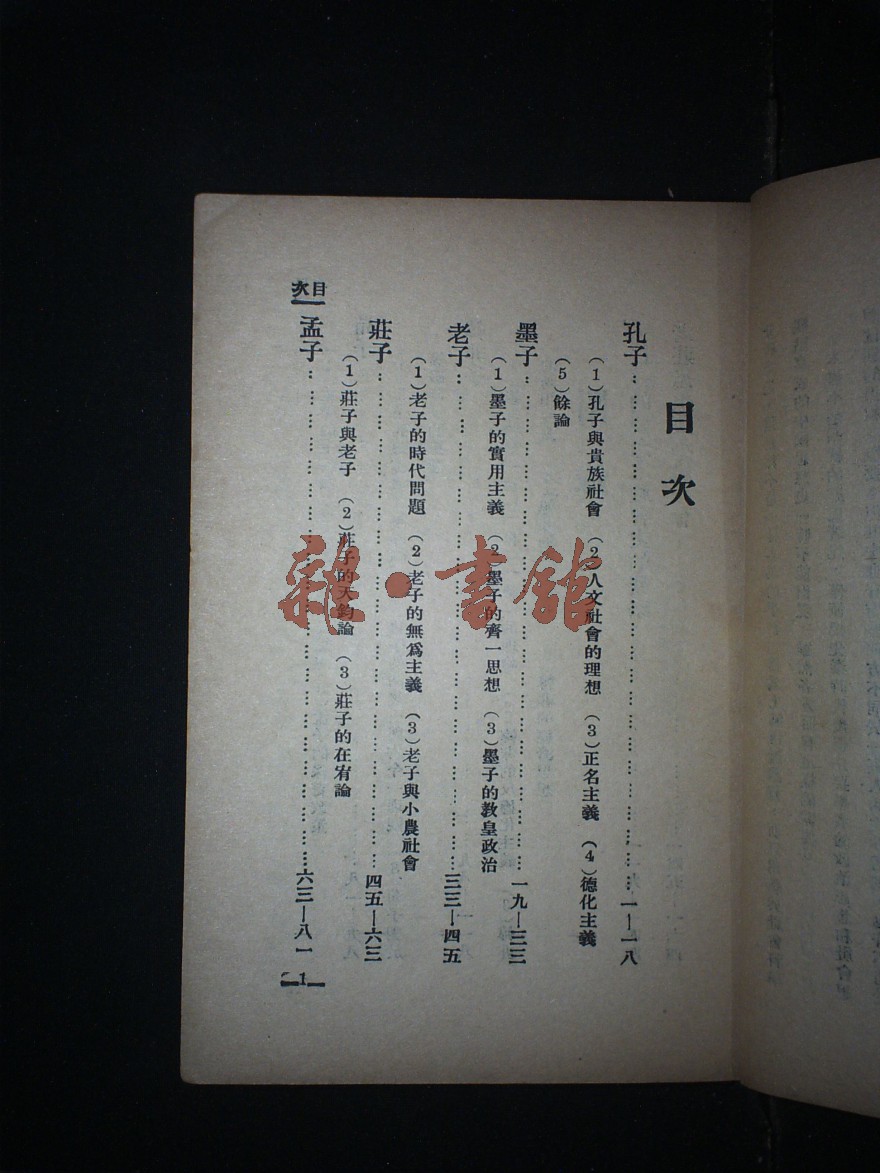 目次
孔子……………………………………一—一八
（1）孔子與貴族社會　（2）人文社會的理想　（3）正名主義　（4）德化主義
（5）餘論
墨子……………………………………一九—三三
（1）墨子的實用主義　（2）墨子的齊一思想　（3）墨子的教皇政治
老子……………………………………三三—四五
（1）老子的時代問題　（2）老子的無爲主義　（3）老子與小農社會
莊子……………………………………四五—六三
（1）莊子與老子　（2）莊子的天鈞論　（3）莊子的在宥論
孟子……………………………………六三—八一
目次
1
雜·書館